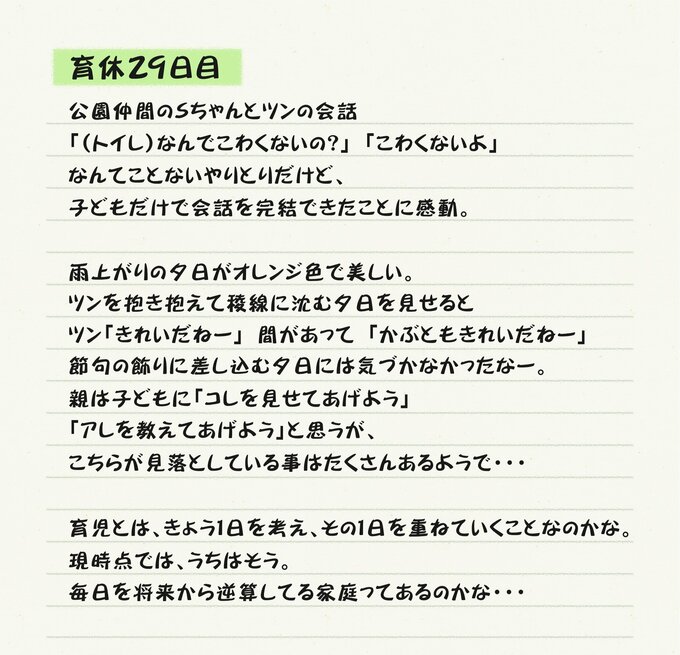 育休29日目
公園仲間のSちゃんとツンの会話
「（トイレ）なんでこわくないの？」「こわくないよ」
なんてことないやりとりだけど、
子どもだけで会話を完結できたことに感動。
雨上がりの夕日がオレンジ色で美しい。
ツンを抱き抱えて稜線に沈む夕日を見せると
ツン「きれいだねー」 間があって 「かぶともきれいだねー」
節句の飾りに差し込む夕日には気づかなかったなー。
親は子どもに「コレを見せてあげよう」
「アレを教えてあげよう」と思うが、
こちらが見落としている事はたくさんあるようで・・・
育児とは、きょう1日を考え、その1日を重ねていくことなのかな。
現時点では、うちはそう。
毎日を将来から逆算してる家庭ってあるのかな・・・